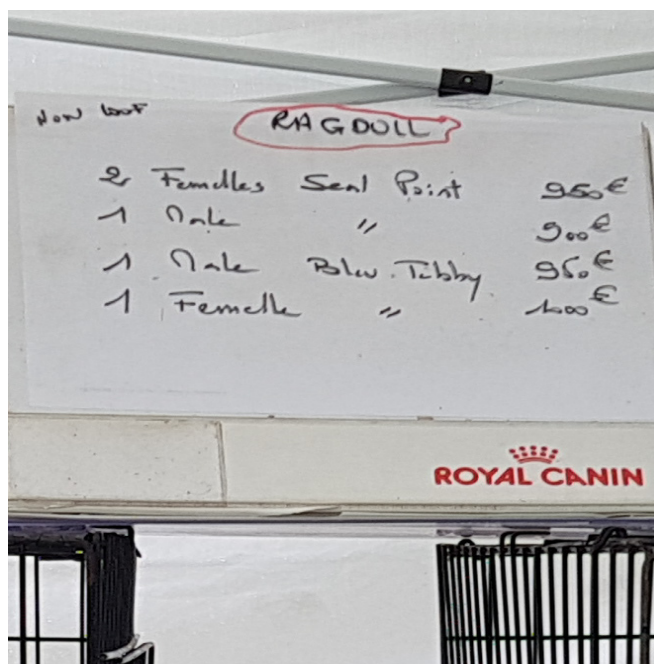 Non loof
RAGDOLL
2 Femelles Seal Point 950€
1 Male " 900€
1 Male Bleu Tabby 950€
1 Femelle " 1000€
ROYAL CANIN